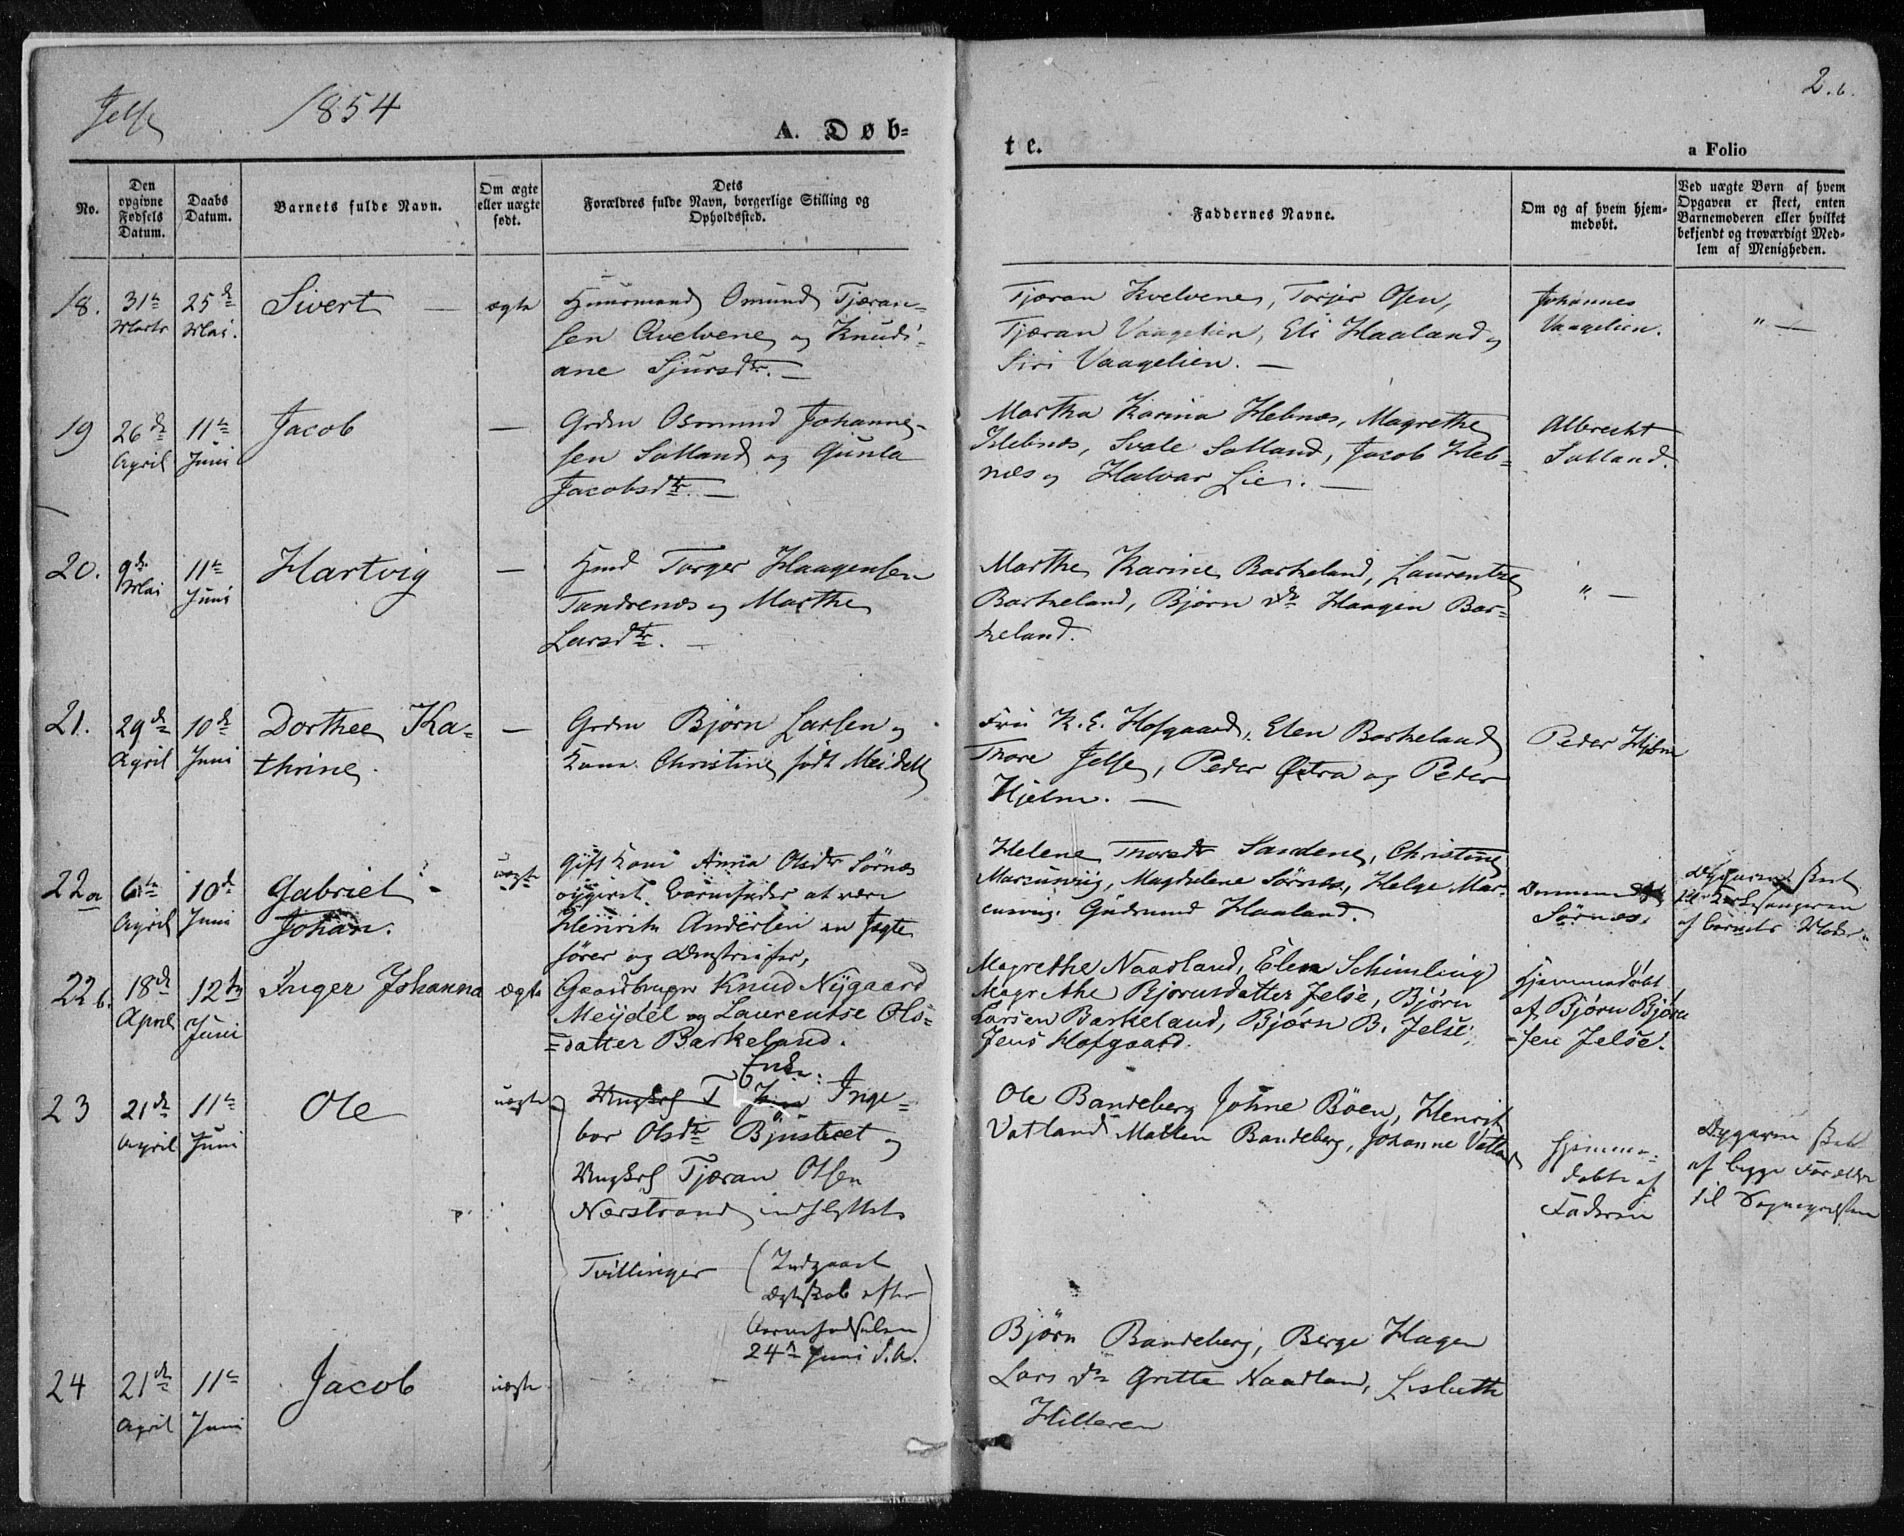 Jelse 1854
2.b.
A. Døb=
te.
a Folio
No.
Den opgivne Fødsels Datum.
Daabs Datum.
Barnets fulde Navn.
Om ægte eller uægte født.
Dets Forældres fulde Navn, borgerlige Stilling og Opholdssted.
Faddernes Navne.
Om og af hvem hjemmedøbt.
Ved uægte Børn af hvem Opgaven er skeet, enten Barnemoderen eller hvilket bekjendt og troværdigt Medlem af Menigheden.
18. 31te Marts 25de Mai. Sivert — ægte
Huusmand Omund Tjæran=
sen Qvelvene og Knudi=
ane Sjursdtr. —
Tjæran Kvelvene, Torjer Osen,
Tjæran Vaagelien, Eli Haaland og
Siri Vaagelien. —
Johannes
Vaagelien.
" —
19 26de April 11te Juni Jacob —
Grdm Osmund Johanne=
sen Solland og Gunla
Jacobsdtr. —
Martha Karina Hebnes, Magrethe
Hebnæs, Svale Solland, Jacob Heb=
næs og Halvar Lie. —
Albrecht
Solland.
20. 9de Mai 11te Juni Hartvig —
Hmd Torger Haagensen
Tandrenæs og Marthe
Larsdtr. —
Marthe Karine Barkeland, Laurentze
Barkeland, Bjørn do Haagen Bar=
keland.
" —
21. 29de April 10de Juni Dorthee Ka=
thrine. —
Grdm Bjørn Larsen og
Kone Christine født Meidell
Fru K. E. Hofgaard, Elen Barkeland
Thore Jelse, Peder Østra og Peder
Hjelm. —
Peder Hjelm
22a 6te April 10de Juni Gabriel
Johan. uægte
Gift Kone Anna Olsdtr Sørnæs
opgivet Barnefader at være
Henrik Andersen en Jagte
fører og
Helene Thorsdtr Sandene, Christine
Marcusviig, Magdelene Sørnæs, Helge Mar=
cusvig. Gudmund Haaland.
Sørnæs.
Opgaven skeet
af Barnets Moder
22b. 18de April 12te Juni Inger Johanna ægte
Gaardbruger Knud Nygaard
Meydel og Laurentse Ols=
=datter Barkeland.
Magrethe Naadland, Elen Schimling
Magrethe Bjørnsdatter Jelse, Bjørn
Larsen Barkeland, Bjørn B. Jelse,
Jens Hofgaard.
Hjemmedøbt
af Bjørn Bjørn
=sen Jelse.
23 21de April 11te Juni Ole uægte
Ungkrl T Enke: Inge=
bor Olsdtr Bjustveet og
Ungkrl Tjæran Olsen
Nærstrand indflyttet
Ole Bandeberg Johne Bøen, Henrik
Vatland Mallen Bandeberg, Johanne Vatland
Hjemme=
døbte af
Faderen
Opgaven skeet
af begge Forældre
til Sognepresten
Tvillinger
(Indgaaet
Ægteskab efter
Barnefødselen
24de Juni d.A.)
24 21de April 11te Juni Jacob uægte
Bjørn Bandeberg, Berge Hagen
Lars do Gritte Naadland, Lisbeth
Hilleren